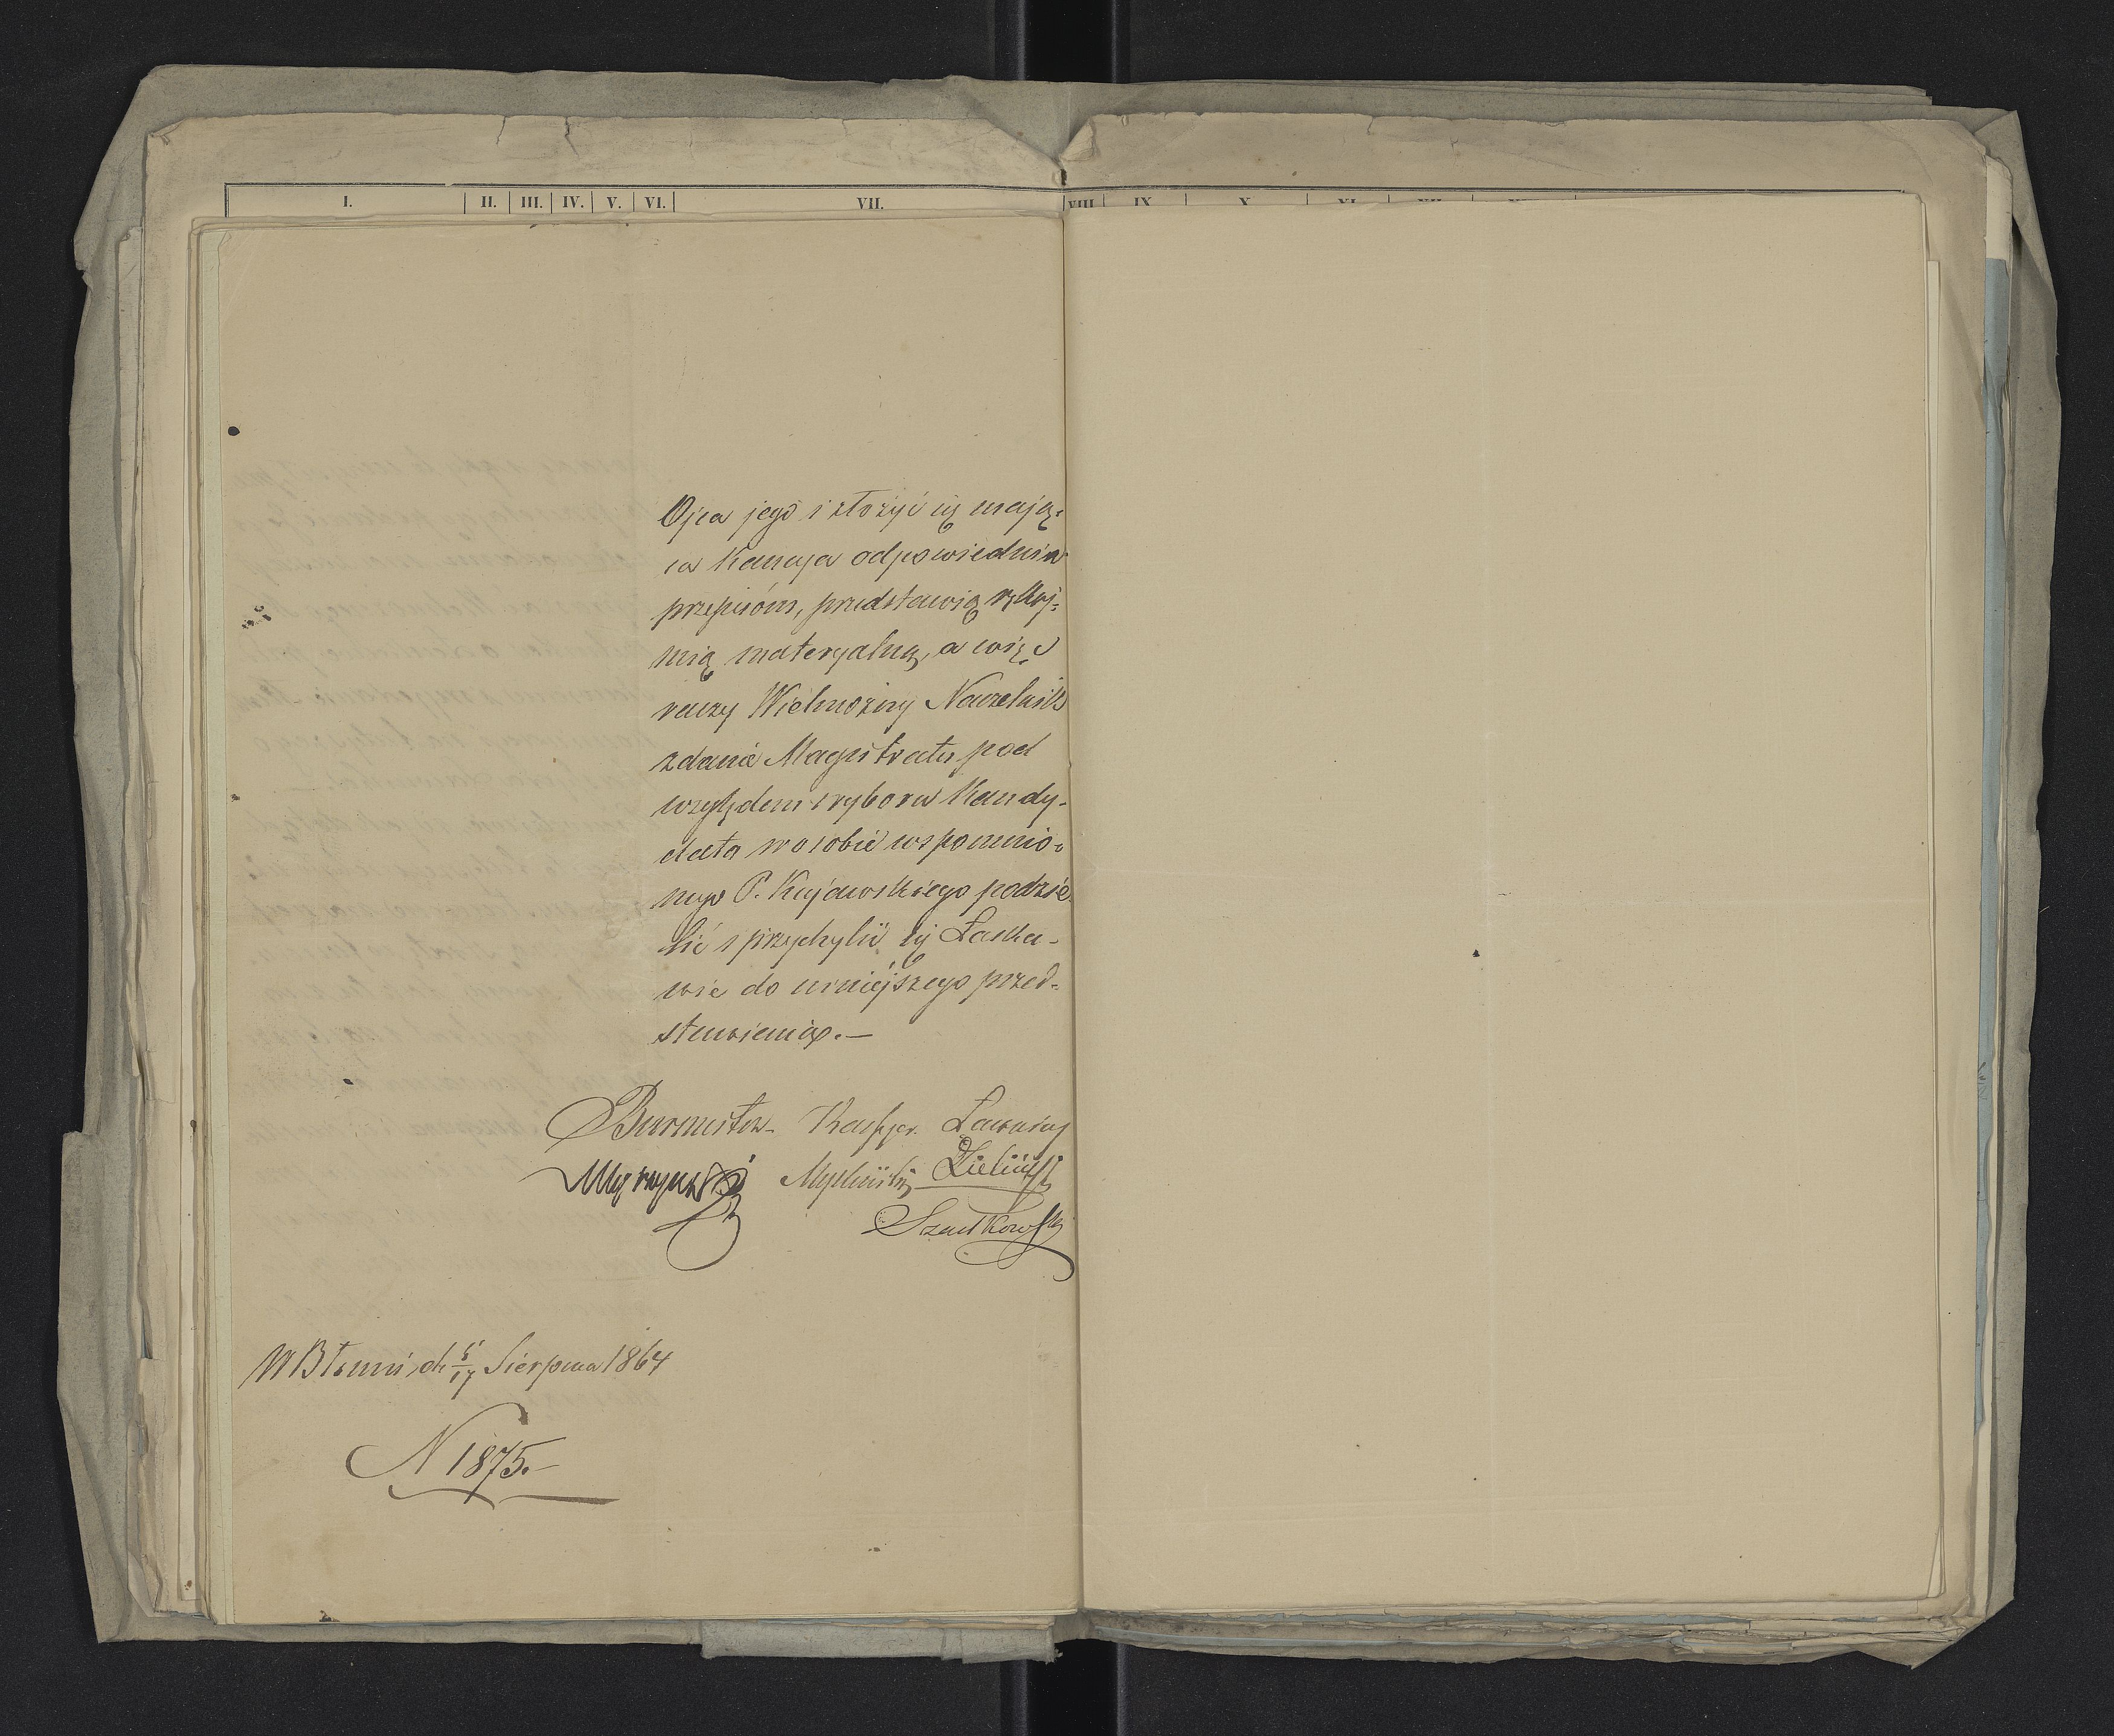 I. II. III. IV. V. VI. VII. VIII IX X XI XII
Ojca jego i złożyć się mają-
ca Kaucya odpowiednia
przepisóm, przedstawią rękoj-
mią materyalną, a więc
raczy Wielmożny Naczelnik
zdanie Magistratu pod
względem wyboru Kandy-
data w osobie wspomnio-
nego P. Kujawskiego podzie-
lić i przychylić się Łaska-
wie do niniejszego przed-
stawienia.—
Burmistrz Kasyer. Ławnicy
Myśliński Zieliński
Szadkowski
W Błoniu d. 5/17 Sierpnia 1864
N 1875.—